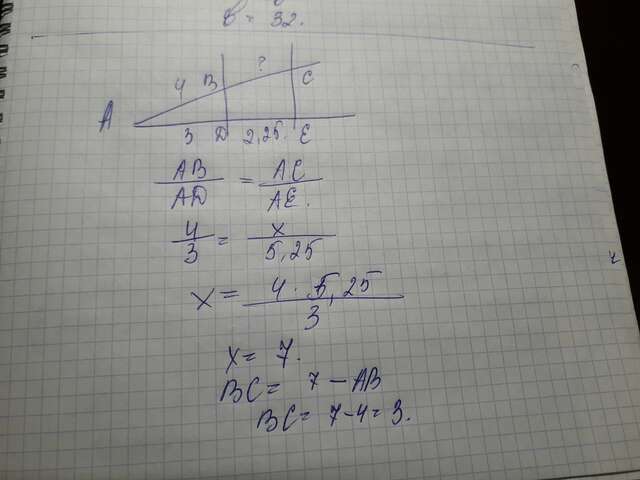 в = 32.
4 B ? C
A
3 D 2,25. E
AB/AD = AC/AE.
4/3 = x/5,25
x = 4 · 5,25/3
x = 7.
BC = 7 - AB
BC = 7-4 = 3.